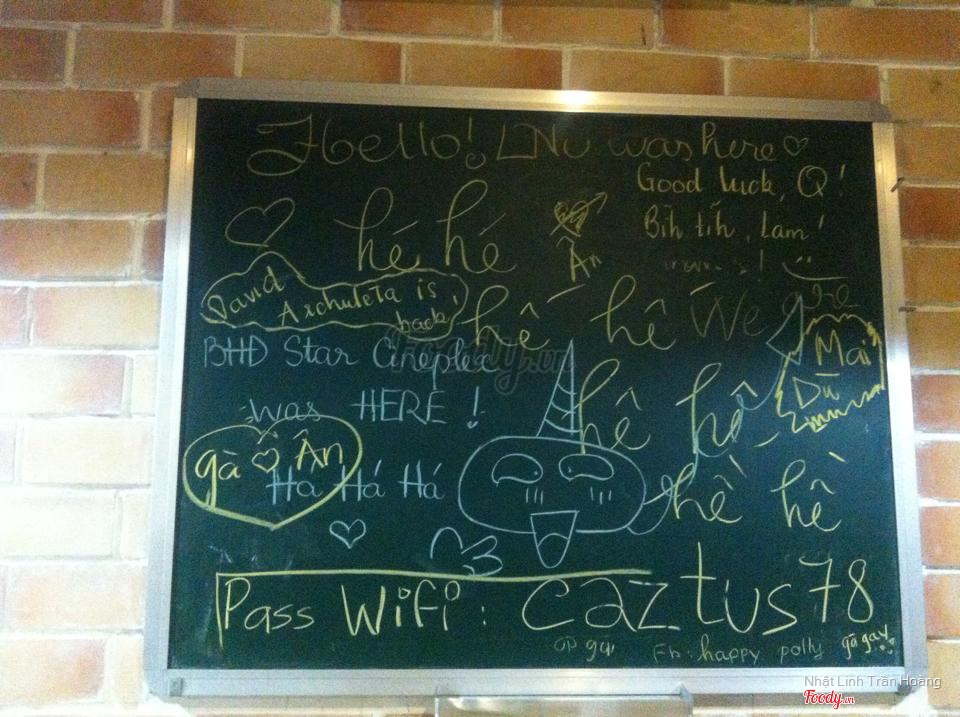 Hello! LNu was here
Good luck, Q!
Bih tih, Lam!
hé hé
Ân
David
Archuleta is
back!
hê hê
We are
BHD Star Cineplex
was HERE!
Mai
Dü
hê hê
gà Ân
Há Há Há
hề hề
Pass WiFi: caztus78
Fb: happy polly
gà gay
Foody.vn
Nhật Linh Trần Hoàng
Foody.vn